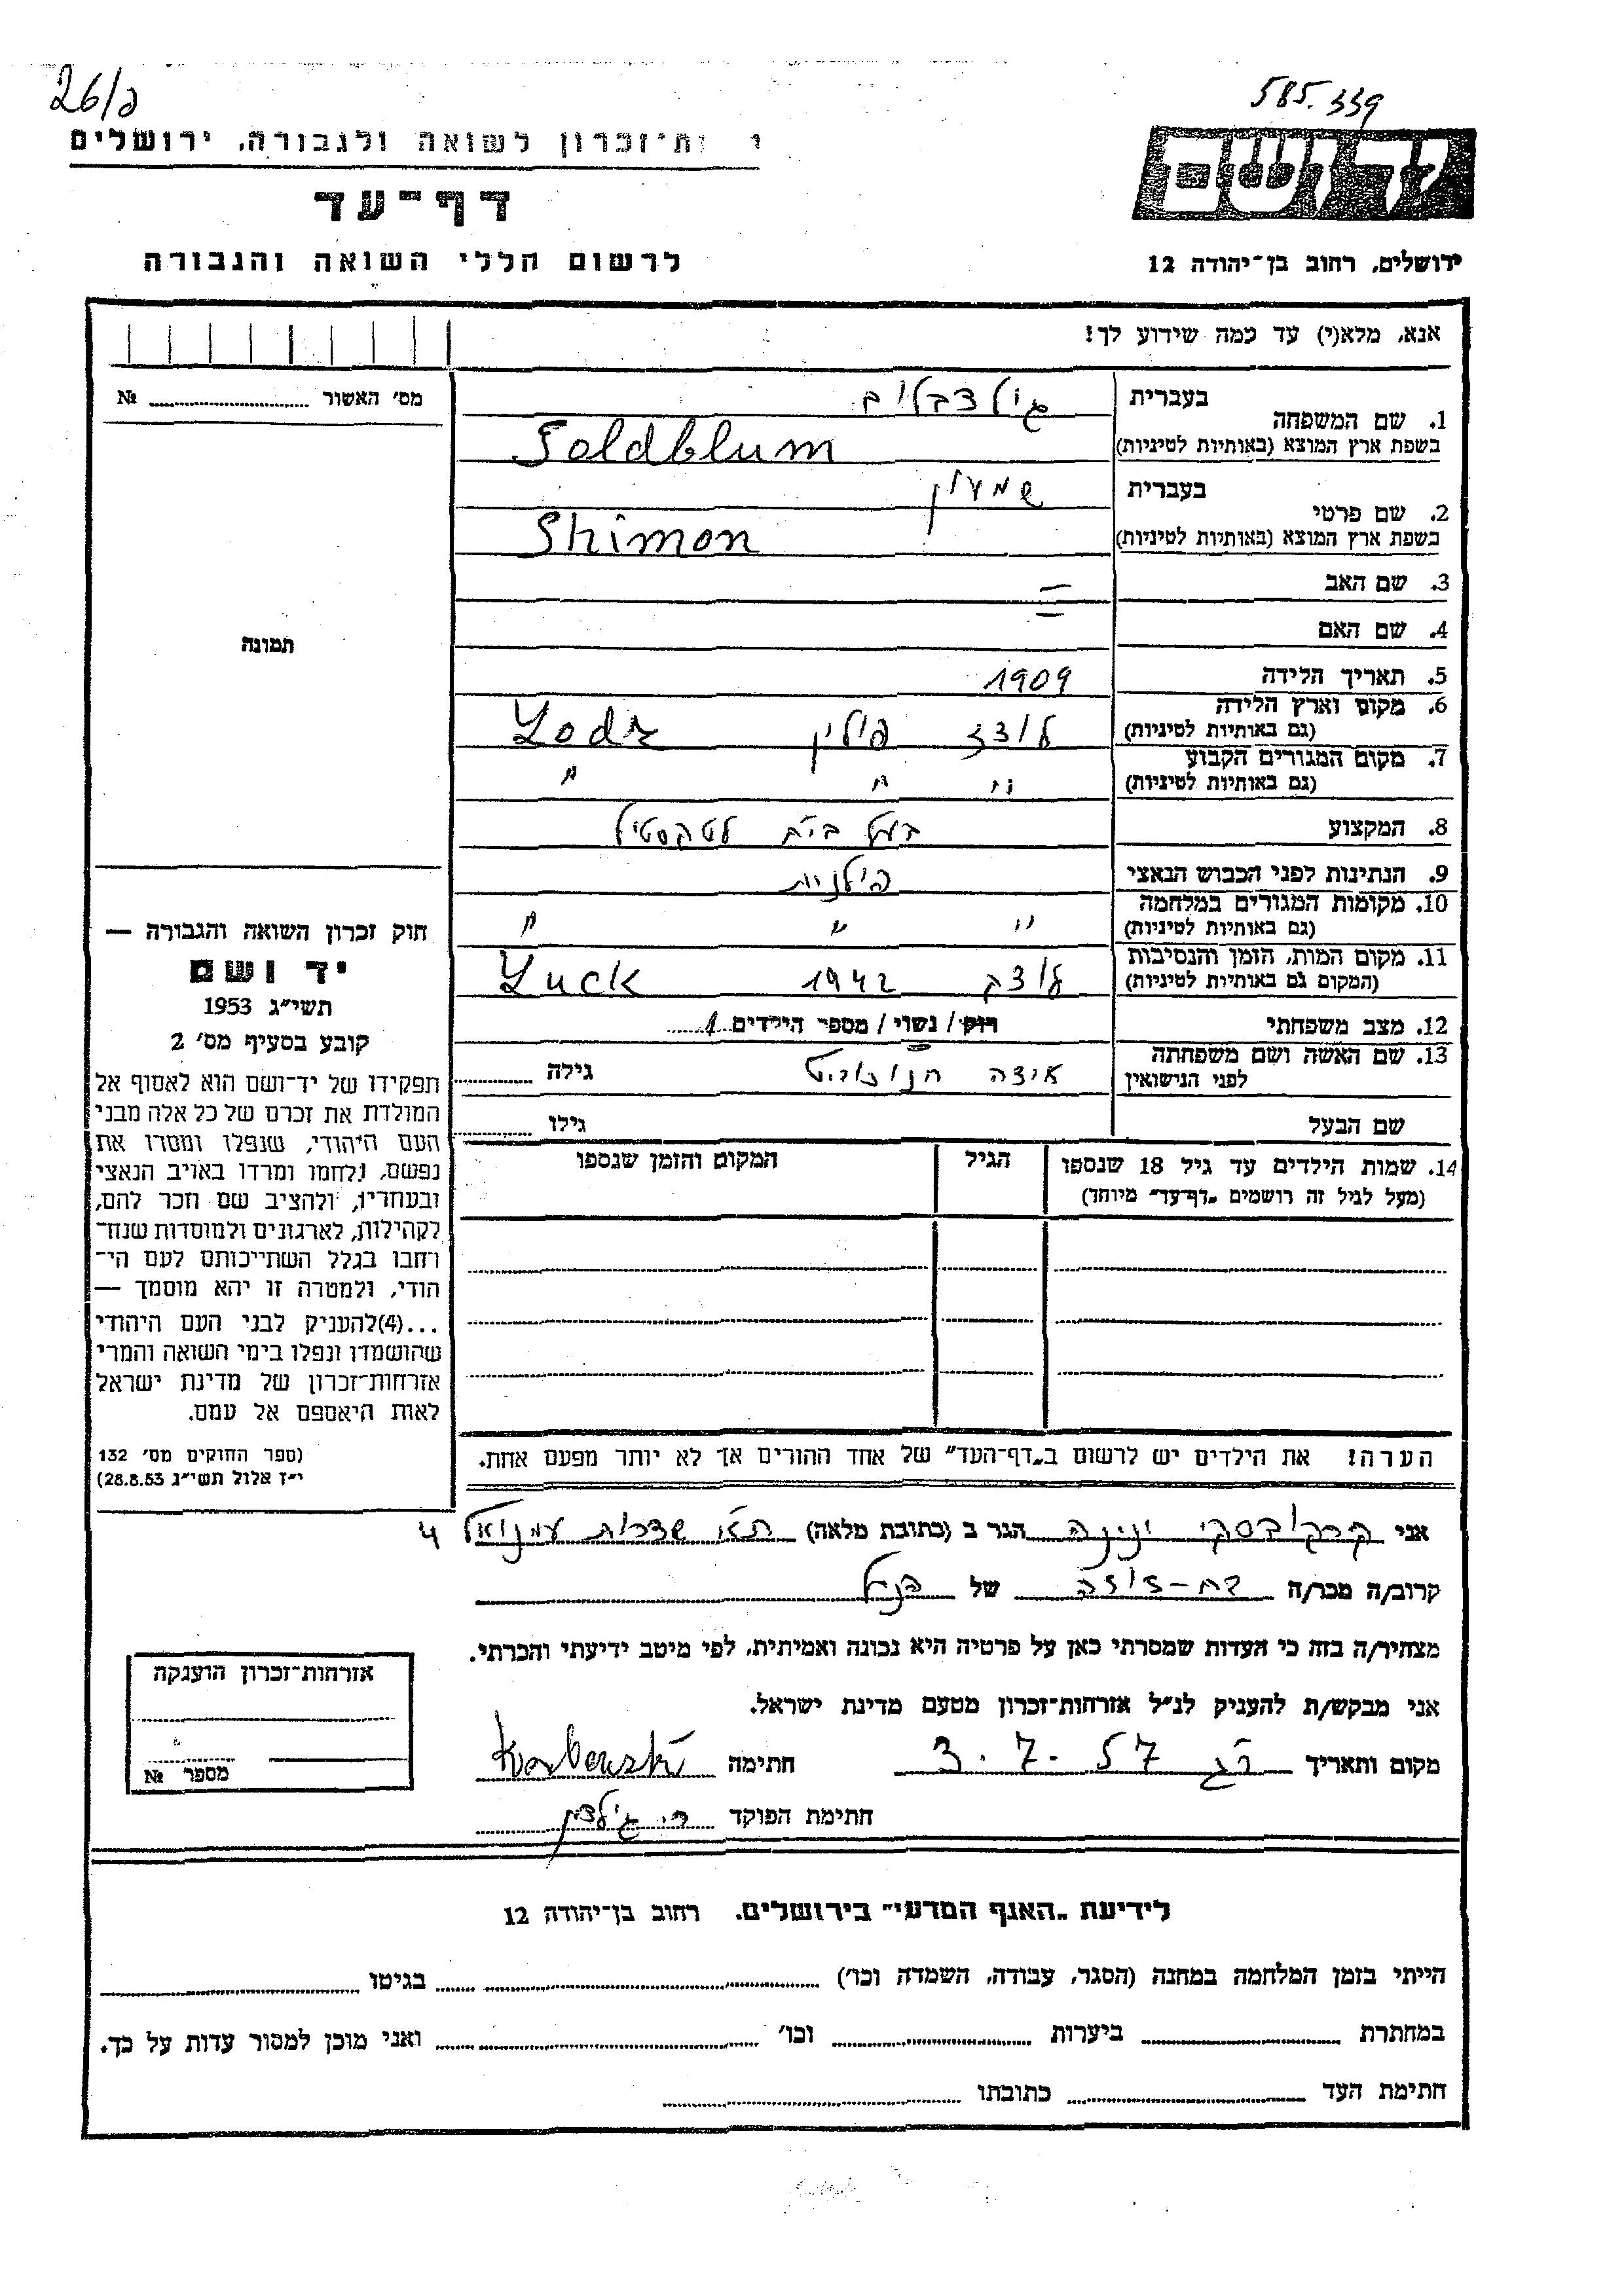 26/ג
585.339
ת־זכרון לשואה ולגבורה, ירושלים
דף־עד
לרשום חללי השואה והגבורה
יד ושם
ירושלים, רחוב בן־יהודה 12
אנא, מלא(י) עד כמה שידוע לך!
מס׳ האשור № 
1. שם המשפחה
בעברית גולדבלום
בשפת ארץ המוצא (באותיות לטיניות) Goldblum
2. שם פרטי
בעברית שמעון
בשפת ארץ המוצא (באותיות לטיניות) Shimon
3. שם האב –
4. שם האם =
5. תאריך הלידה 1909
6. מקום וארץ הלידה (גם באותיות לטיניות) לודז פולין Lodz
7. מקום המגורים הקבוע (גם באותיות לטיניות) " " "
8. המקצוע בעל בי״ח לטקסטיל
9. הנתינות לפני הכבוש הנאצי פולנית
10. מקומות המגורים במלחמה (גם באותיות לטיניות) " " "
11. מקום המות, הזמן והנסיבות (המקום גם באותיות לטיניות) לוצק 1942 Luck
12. מצב משפחתי רווק / נשוי / מספר הילדים 1
13. שם האשה ושם משפחתה לפני הנישואין אידה גילה
שם הבעל גילו
14. שמות הילדים עד גיל 18 שנספו (מעל לגיל זה רושמים „דף־עד״ מיוחד)
הגיל
המקום והזמן שנספו
תמונה
חוק זכרון השואה והגבורה —
יד ושם
תשי״ג 1953
קובע בסעיף מס׳ 2
תפקידו של יד־ושם הוא לאסוף אל
המולדת את זכרם של כל אלה מבני
העם היהודי, שנפלו ומסרו את
נפשם, נלחמו ומרדו באויב הנאצי
ובעוזריו, ולהציב שם וזכר להם,
לקהילות, לארגונים ולמוסדות שנח־
רבו בגלל השתייכותם לעם הי־
הודי, ולמטרה זו יהא מוסמך —
...(4)להעניק לבני העם היהודי
שהושמדו ונפלו בימי השואה והמרי
אזרחות־זכרון של מדינת ישראל
לאות היאספם אל עמם.
(ספר החוקים מס׳ 132
י״ז אלול תשי״ג 28.8.53)
הערה! את הילדים יש לרשום ב„דף־העד״ של אחד ההורים אך לא יותר מפעם אחת.
אני קרבובסקי ינינה הגר ב (כתובת מלאה) ת״א שדרות עמנואל 4
קרוב/ה מכר/ה בת-דודה של הנ״ל
מצהיר/ה בזה כי העדות שמסרתי כאן על פרטיה היא נכונה ואמיתית, לפי מיטב ידיעתי והכרתי.
אני מבקש/ת להעניק לנ״ל אזרחות־זכרון מטעם מדינת ישראל.
מקום ותאריך ר״ג 3.7.57 חתימה
חתימת הפוקד
אזרחות־זכרון הוענקה
מספר №
לידיעת „האגף המדעי״ בירושלים, רחוב בן־יהודה 12
הייתי בזמן המלחמה במחנה (הסגר, עבודה, השמדה וכו׳) בגיטו
במחתרת ביערות וכו׳ ואני מוכן למסור עדות על כך.
חתימת העד כתובתו